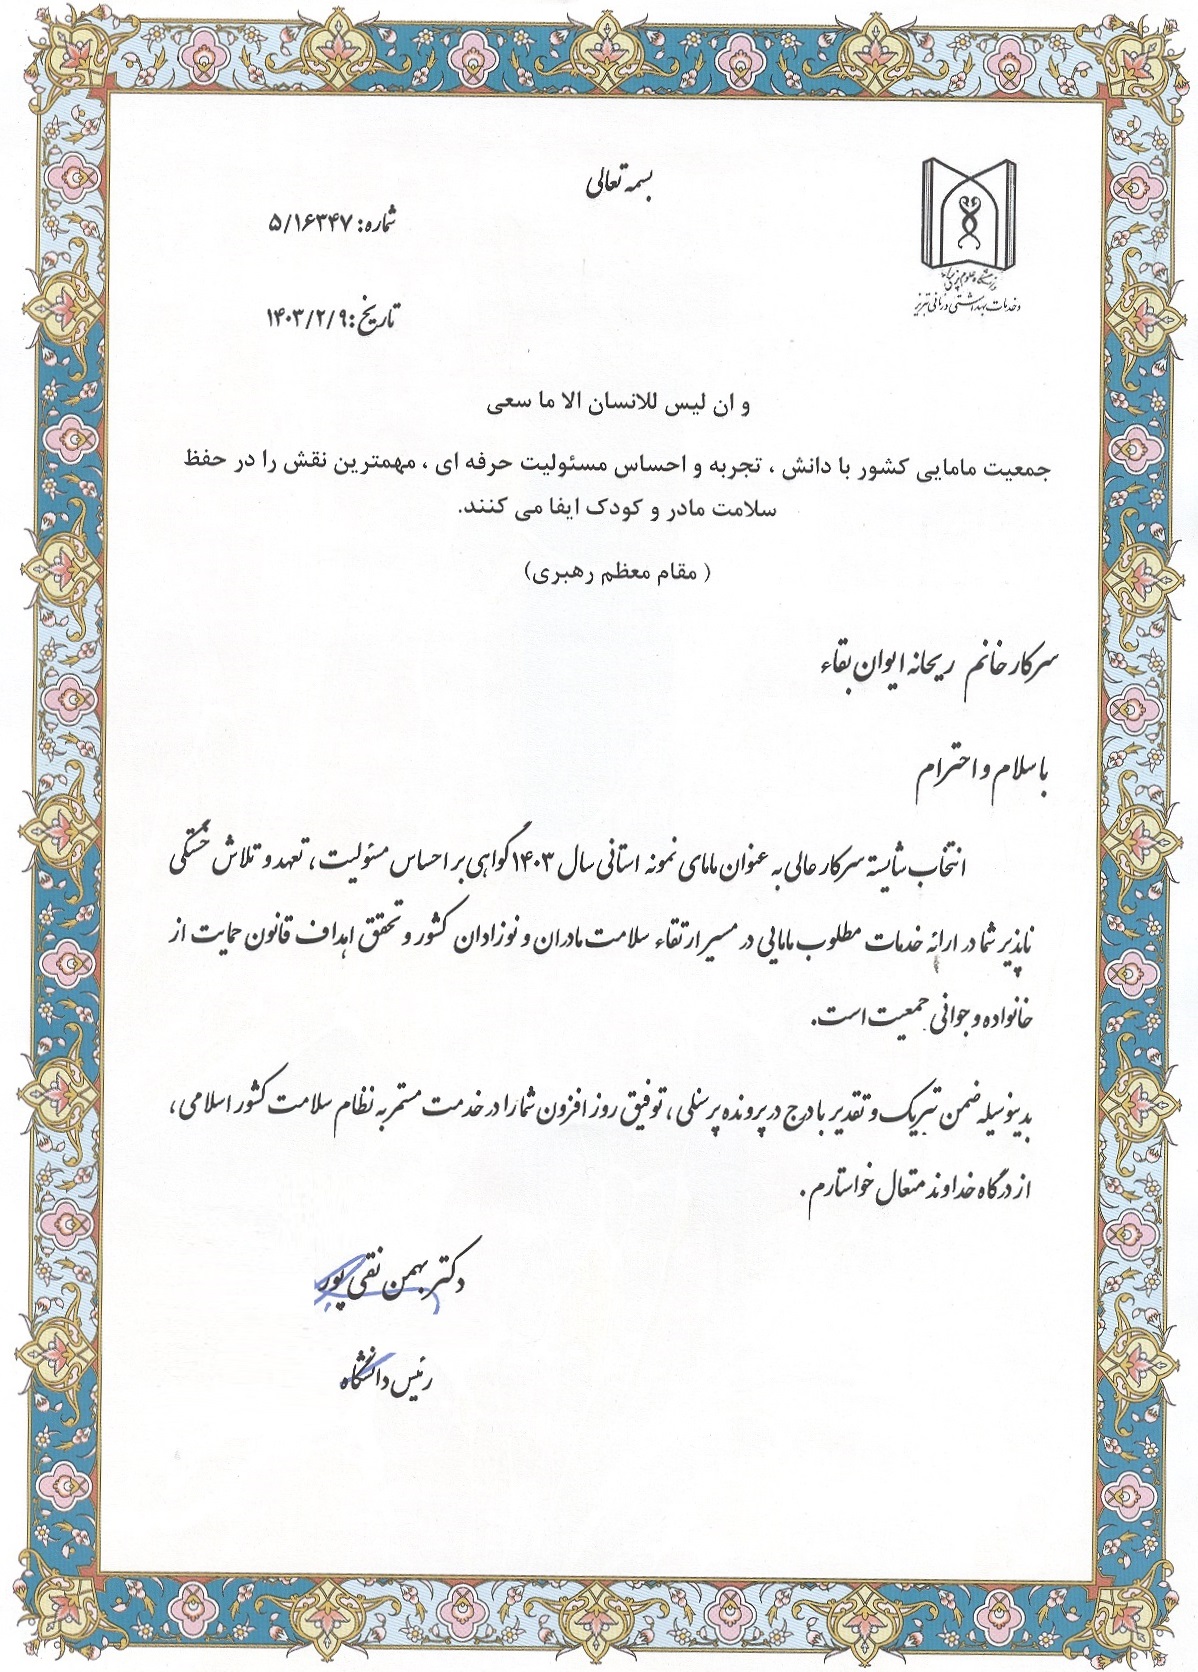 بسمه تعالی
شماره: ۵/۱۶۳۴۷
تاریخ: ۱۴۰۳/۲/۹
دانشگاه علوم پزشکی
و خدمات بهداشتی درمانی تبریز
و ان لیس للانسان الا ما سعی
جمعیت مامایی کشور با دانش ، تجربه و احساس مسئولیت حرفه ای ، مهمترین نقش را در حفظ
سلامت مادر و کودک ایفا می کنند.
( مقام معظم رهبری)
سرکار خانم ریحانه ایوان بقاء
با سلام و احترام
انتخاب شایسته سرکار عالی به عنوان مامای نمونه استانی سال ۱۴۰۳ گواهی بر احساس مسئولیت ، تعهد و تلاش خستگی
ناپذیر شما در ارائه خدمات مطلوب مامایی در مسیر ارتقاء سلامت مادران و نوزادان کشور و تحقق اهداف قانون حمایت از
خانواده و جوانی جمعیت است.
بدینوسیله ضمن تبریک و تقدیر با درج در پرونده پرسنلی ، توفیق روز افزون شما را در خدمت مستمر به نظام سلامت کشور اسلامی ،
از درگاه خداوند متعال خواستارم .
دکتر بهمن نقی پور
رئیس دانشگاه